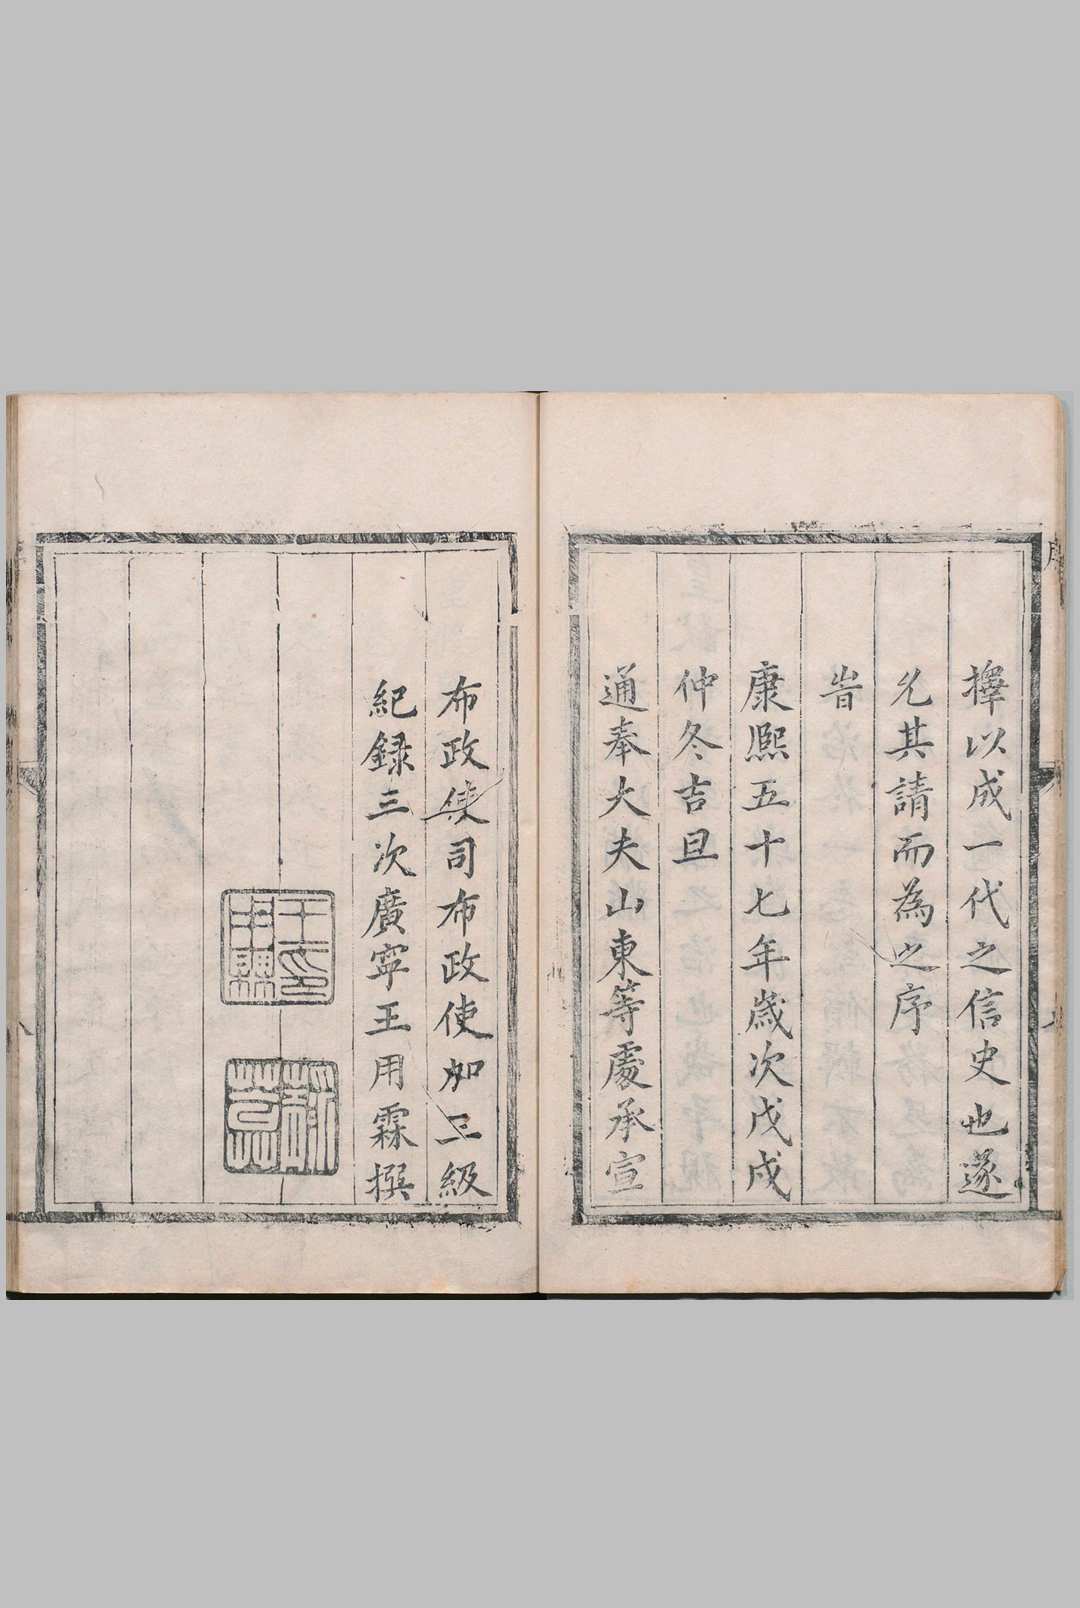 擇以成一代之信史也遂
允其請而為之序
旹
康熙五十七年歲次戊戌
仲冬吉旦
通奉大夫山東等處承宣
布政使司布政使加三級
紀錄三次廣寧王用霖撰
王印用霖
序